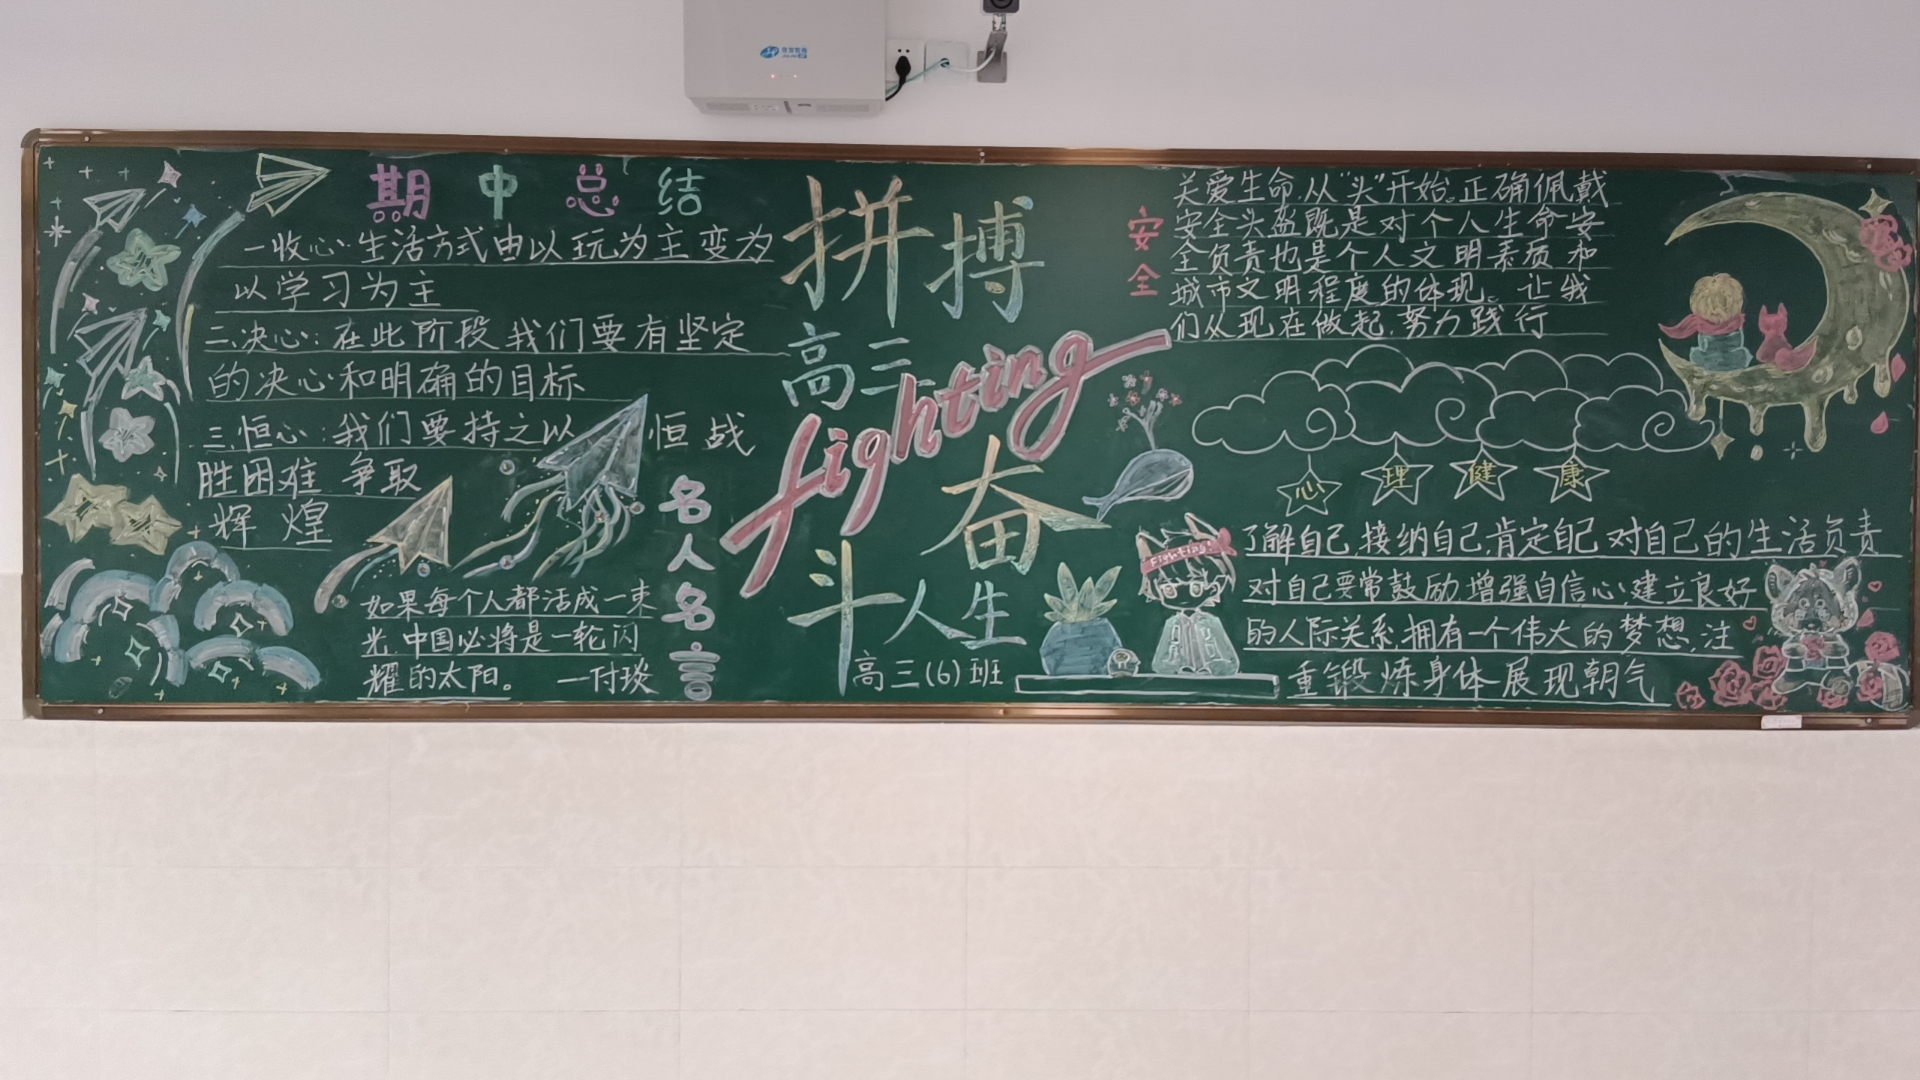 期中总结
一收心:生活方式由以玩为主变为
以学习为主
二决心:在此阶段我们要有坚定
的决心和明确的目标
三恒心:我们要持之以恒战
胜困难 争取
辉煌
名人名言
如果每个人都活成一束
光,中国必将是一轮闪
耀的太阳。 —付琰
拼搏
高三
fighting
奋
斗人生
高三(6)班
安全
关爱生命.从“头”开始。正确佩戴
安全头盔既是对个人生命安
全负责也是个人文明素质和
城市文明程度的体现。让我
们从现在做起,努力践行
心理健康
Fighting!
了解自己,接纳自己,肯定自己 对自己的生活负责
对自己要常鼓励,增强自信心,建立良好
的人际关系,拥有一个伟大的梦想,注
重锻炼身体展现朝气